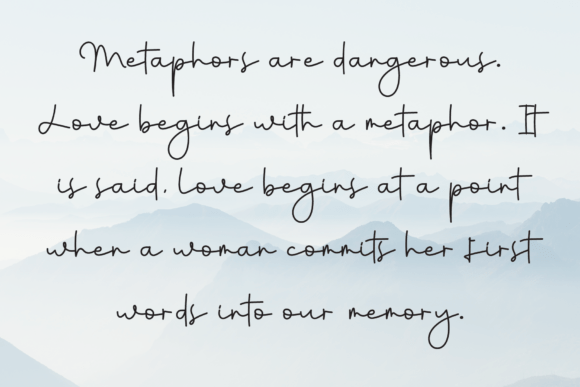 Metaphors are dangerous.
Love begins with a metaphor. It
is said, love begins at a point
when a woman commits her first
words into our memory.